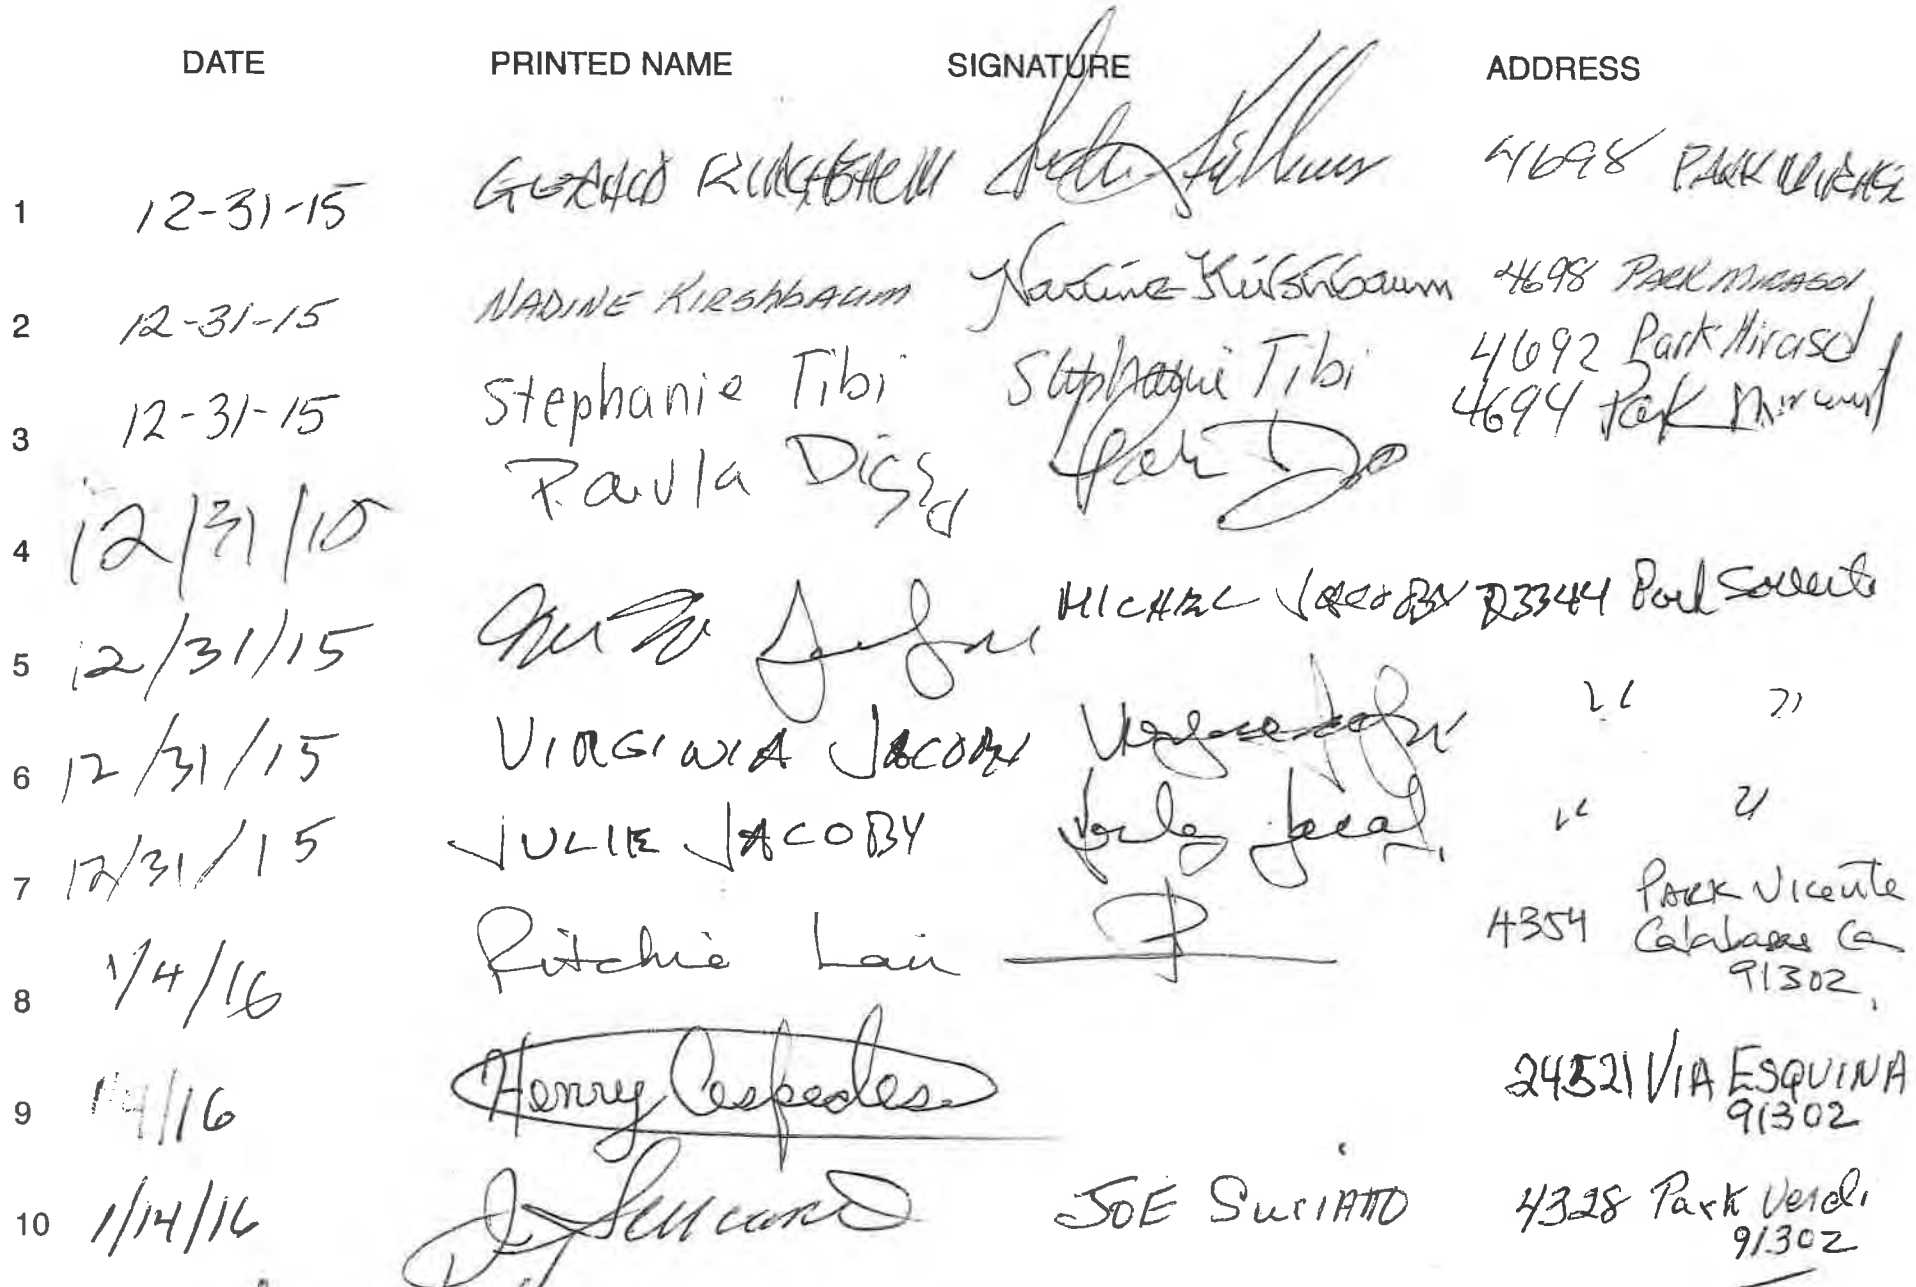 DATE PRINTED NAME SIGNATURE ADDRESS
1 12-31-15 4698 PARK
2 12-31-15 NADINE KIRSHBAUM Nadine Kirshbaum 4698 PARK MIRASOL
3 12-31-15 Stephanie Tibi Stephanie Tibi 4692 Park Mirasol
4 12/31/15 Paula 4694 Park
5 12/31/15 MICHAEL JACOBY 23344 Park Sorrento
6 12/31/15 VIRGINIA JACOBY " "
7 12/31/15 JULIE JACOBY " "
8 1/4/16 Ritchie Lau 4354 PARK Vicente
Calabasas Ca
91302
9 1/4/16 Henry Cespedes 24521 VIA ESQUINA
91302
10 1/14/16 JOE 4328 Park Verdi
91302